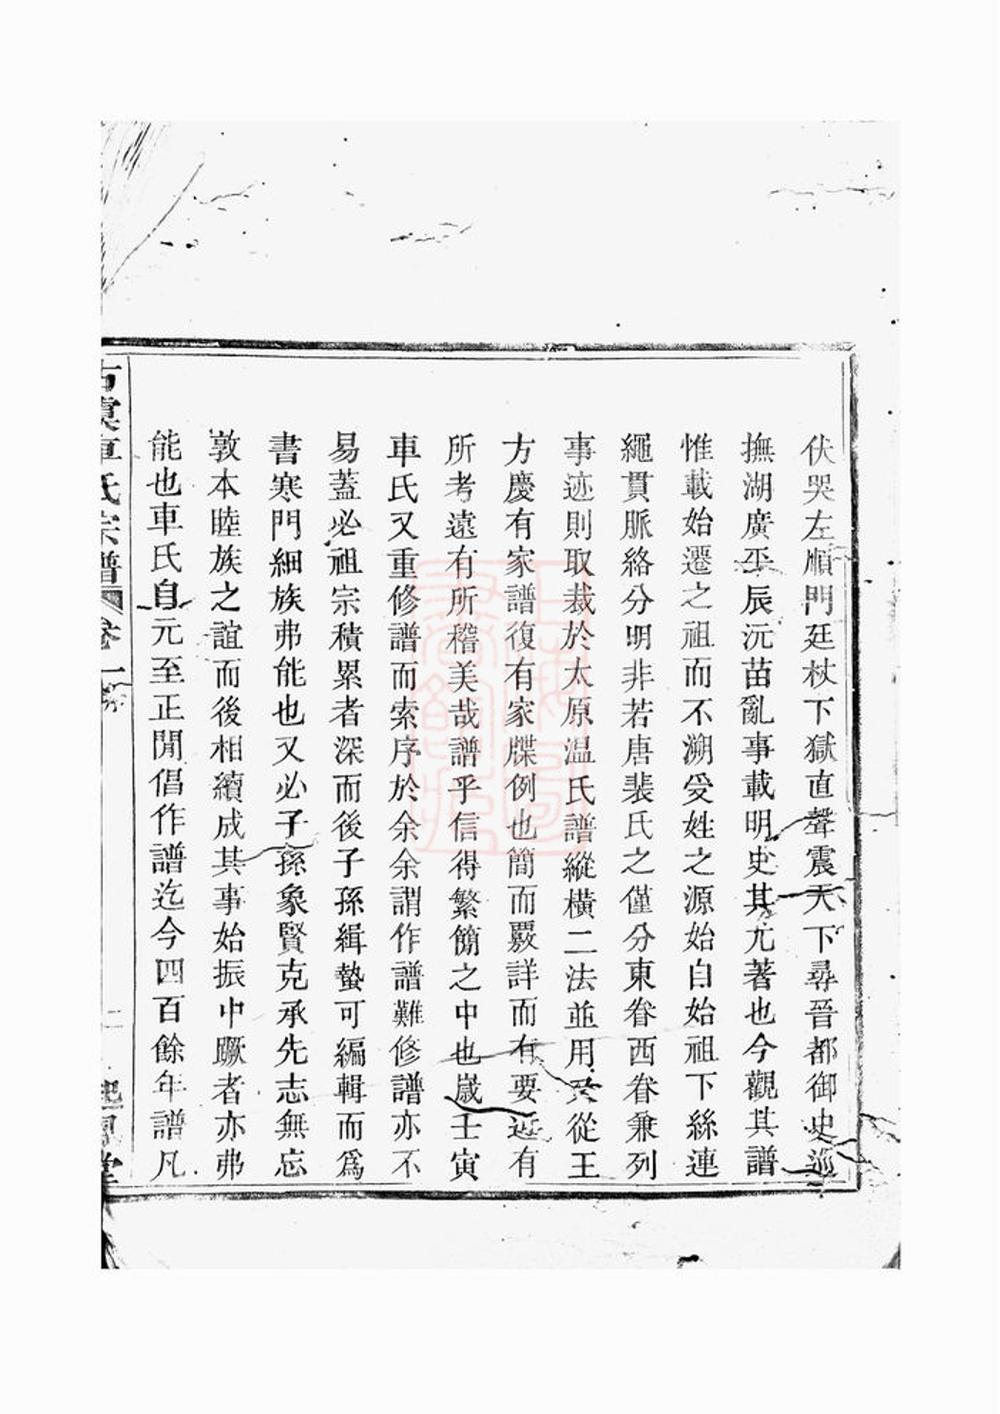 伏哭左順門廷杖下獄直聲震天下尋晉都御史巡
撫湖廣平辰沅苗亂事載明史其尤著也今觀其譜
惟載始遷之祖而不溯受姓之源始自始祖下絲連
繩貫脈絡分明非若唐裴氏之僅分東眷西眷兼列
事迹則取裁於太原温氏譜縱橫二法並用又從王
方慶有家譜復有家牒例也簡而覈詳而有要近有
所考遠有所稽美哉譜乎信得繁簡之中也歲壬寅
車氏又重修譜而索序於余余謂作譜難修譜亦不
易蓋必祖宗積累者深而後子孫緝蟄可編輯而爲
書寒門細族弗能也又必子孫象賢克承先志無忘
敦本睦族之誼而後相續成其事始振中蹶者亦弗
能也車氏自元至正閒倡作譜迄今四百餘年譜凡
古虞車氏宗譜 卷一 二 堂